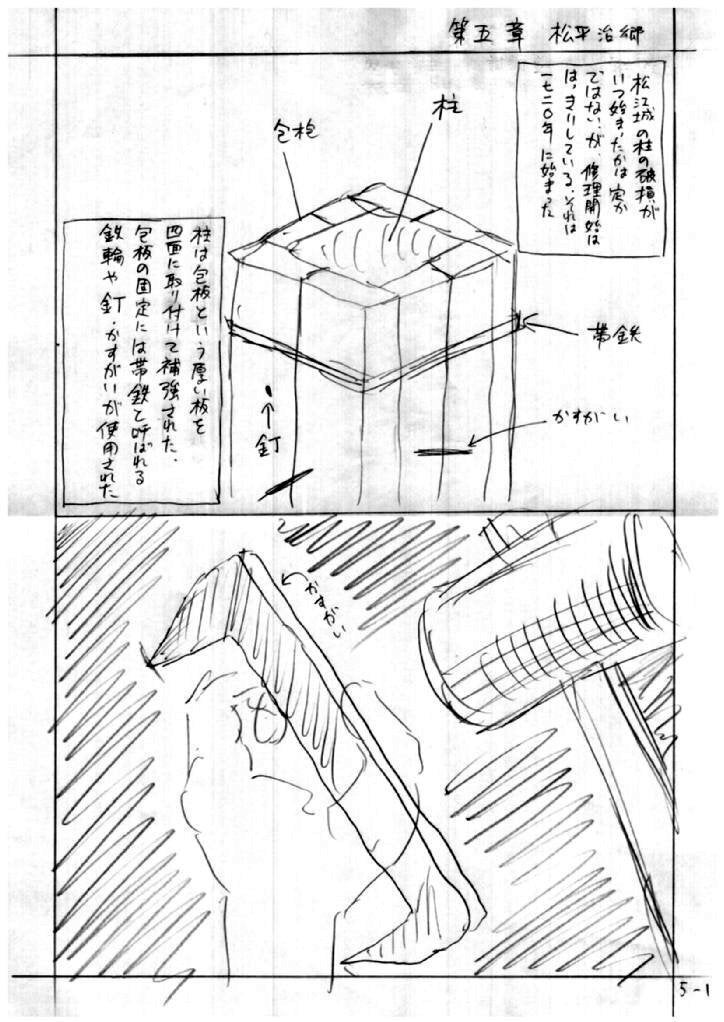 第五章 松平治郷
松江城の柱の破損が
いつ始まったかは定か
ではない。が、修理開始は
はっきりしている。それは
一七二〇年に始まった
柱
包板
帯鉄
かすがい
釘
柱は包板という厚い板を
四面に取り付けて補強された。
包板の固定には帯鉄と呼ばれる
鉄輪や釘・かすがいが使用された
かすがい
5-1